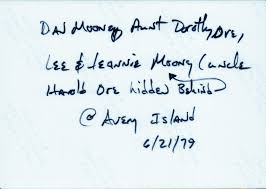 Dan Mooney Aunt Dorothy Ore,
Lee & Jeannie Moony (uncle
Harold Ore hidden Behind
@ Avery Island
6/21/79